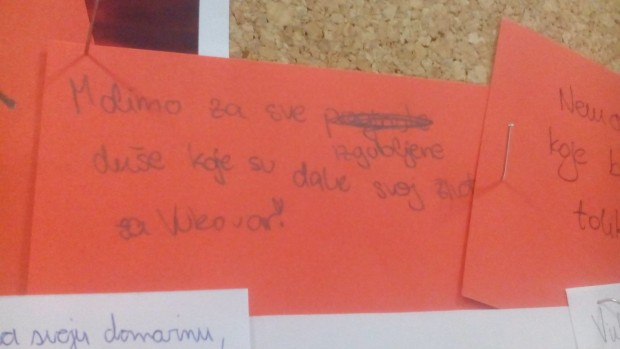 Molimo za sve
izgubljene
duše koje su dale svoj život
za Vukovar!
Nemo
koje b
toli
a svoju domovinu,
Vu